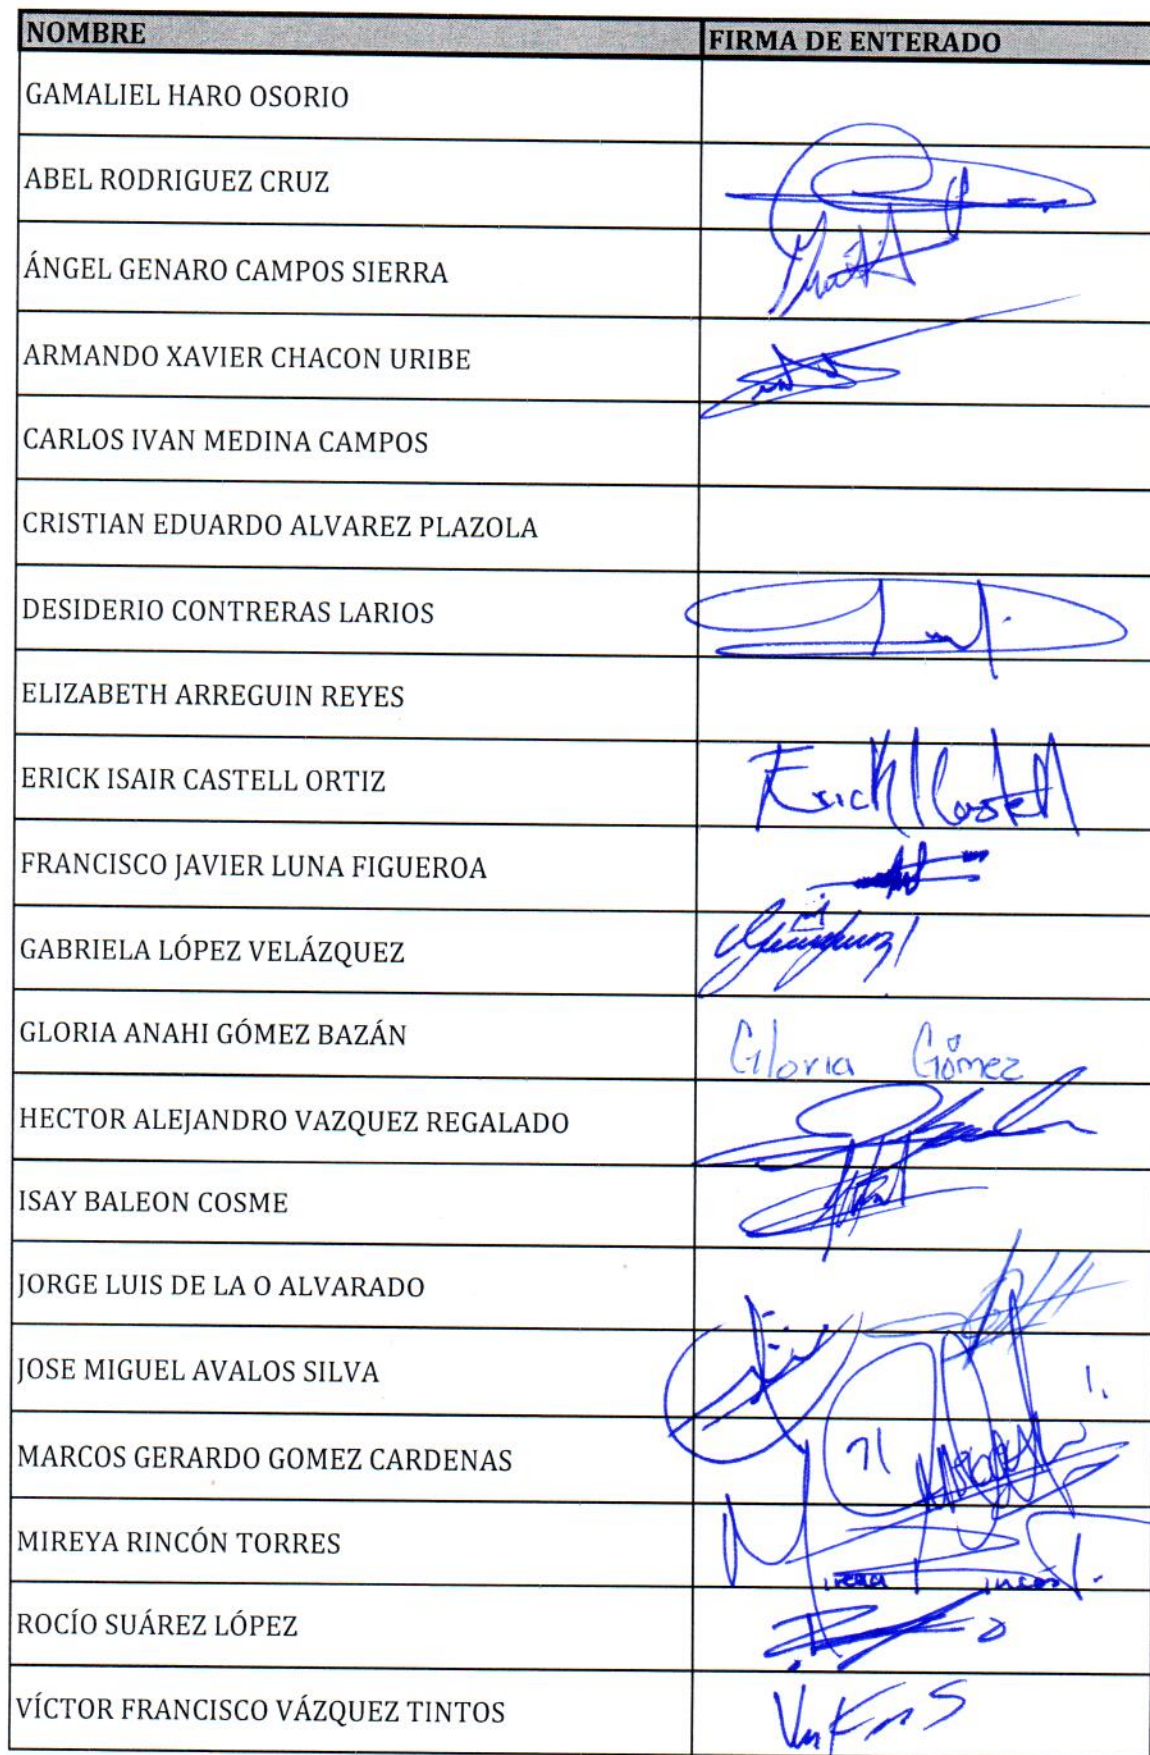 NOMBRE FIRMA DE ENTERADO
GAMALIEL HARO OSORIO
ABEL RODRIGUEZ CRUZ
ÁNGEL GENARO CAMPOS SIERRA
ARMANDO XAVIER CHACON URIBE
CARLOS IVAN MEDINA CAMPOS
CRISTIAN EDUARDO ALVAREZ PLAZOLA
DESIDERIO CONTRERAS LARIOS
ELIZABETH ARREGUIN REYES
ERICK ISAIR CASTELL ORTIZ Erick Castell
FRANCISCO JAVIER LUNA FIGUEROA
GABRIELA LÓPEZ VELÁZQUEZ
GLORIA ANAHI GÓMEZ BAZÁN Gloria Gómez
HECTOR ALEJANDRO VAZQUEZ REGALADO
ISAY BALEON COSME
JORGE LUIS DE LA O ALVARADO
JOSE MIGUEL AVALOS SILVA
MARCOS GERARDO GOMEZ CARDENAS
MIREYA RINCÓN TORRES
ROCÍO SUÁREZ LÓPEZ
VÍCTOR FRANCISCO VÁZQUEZ TINTOS